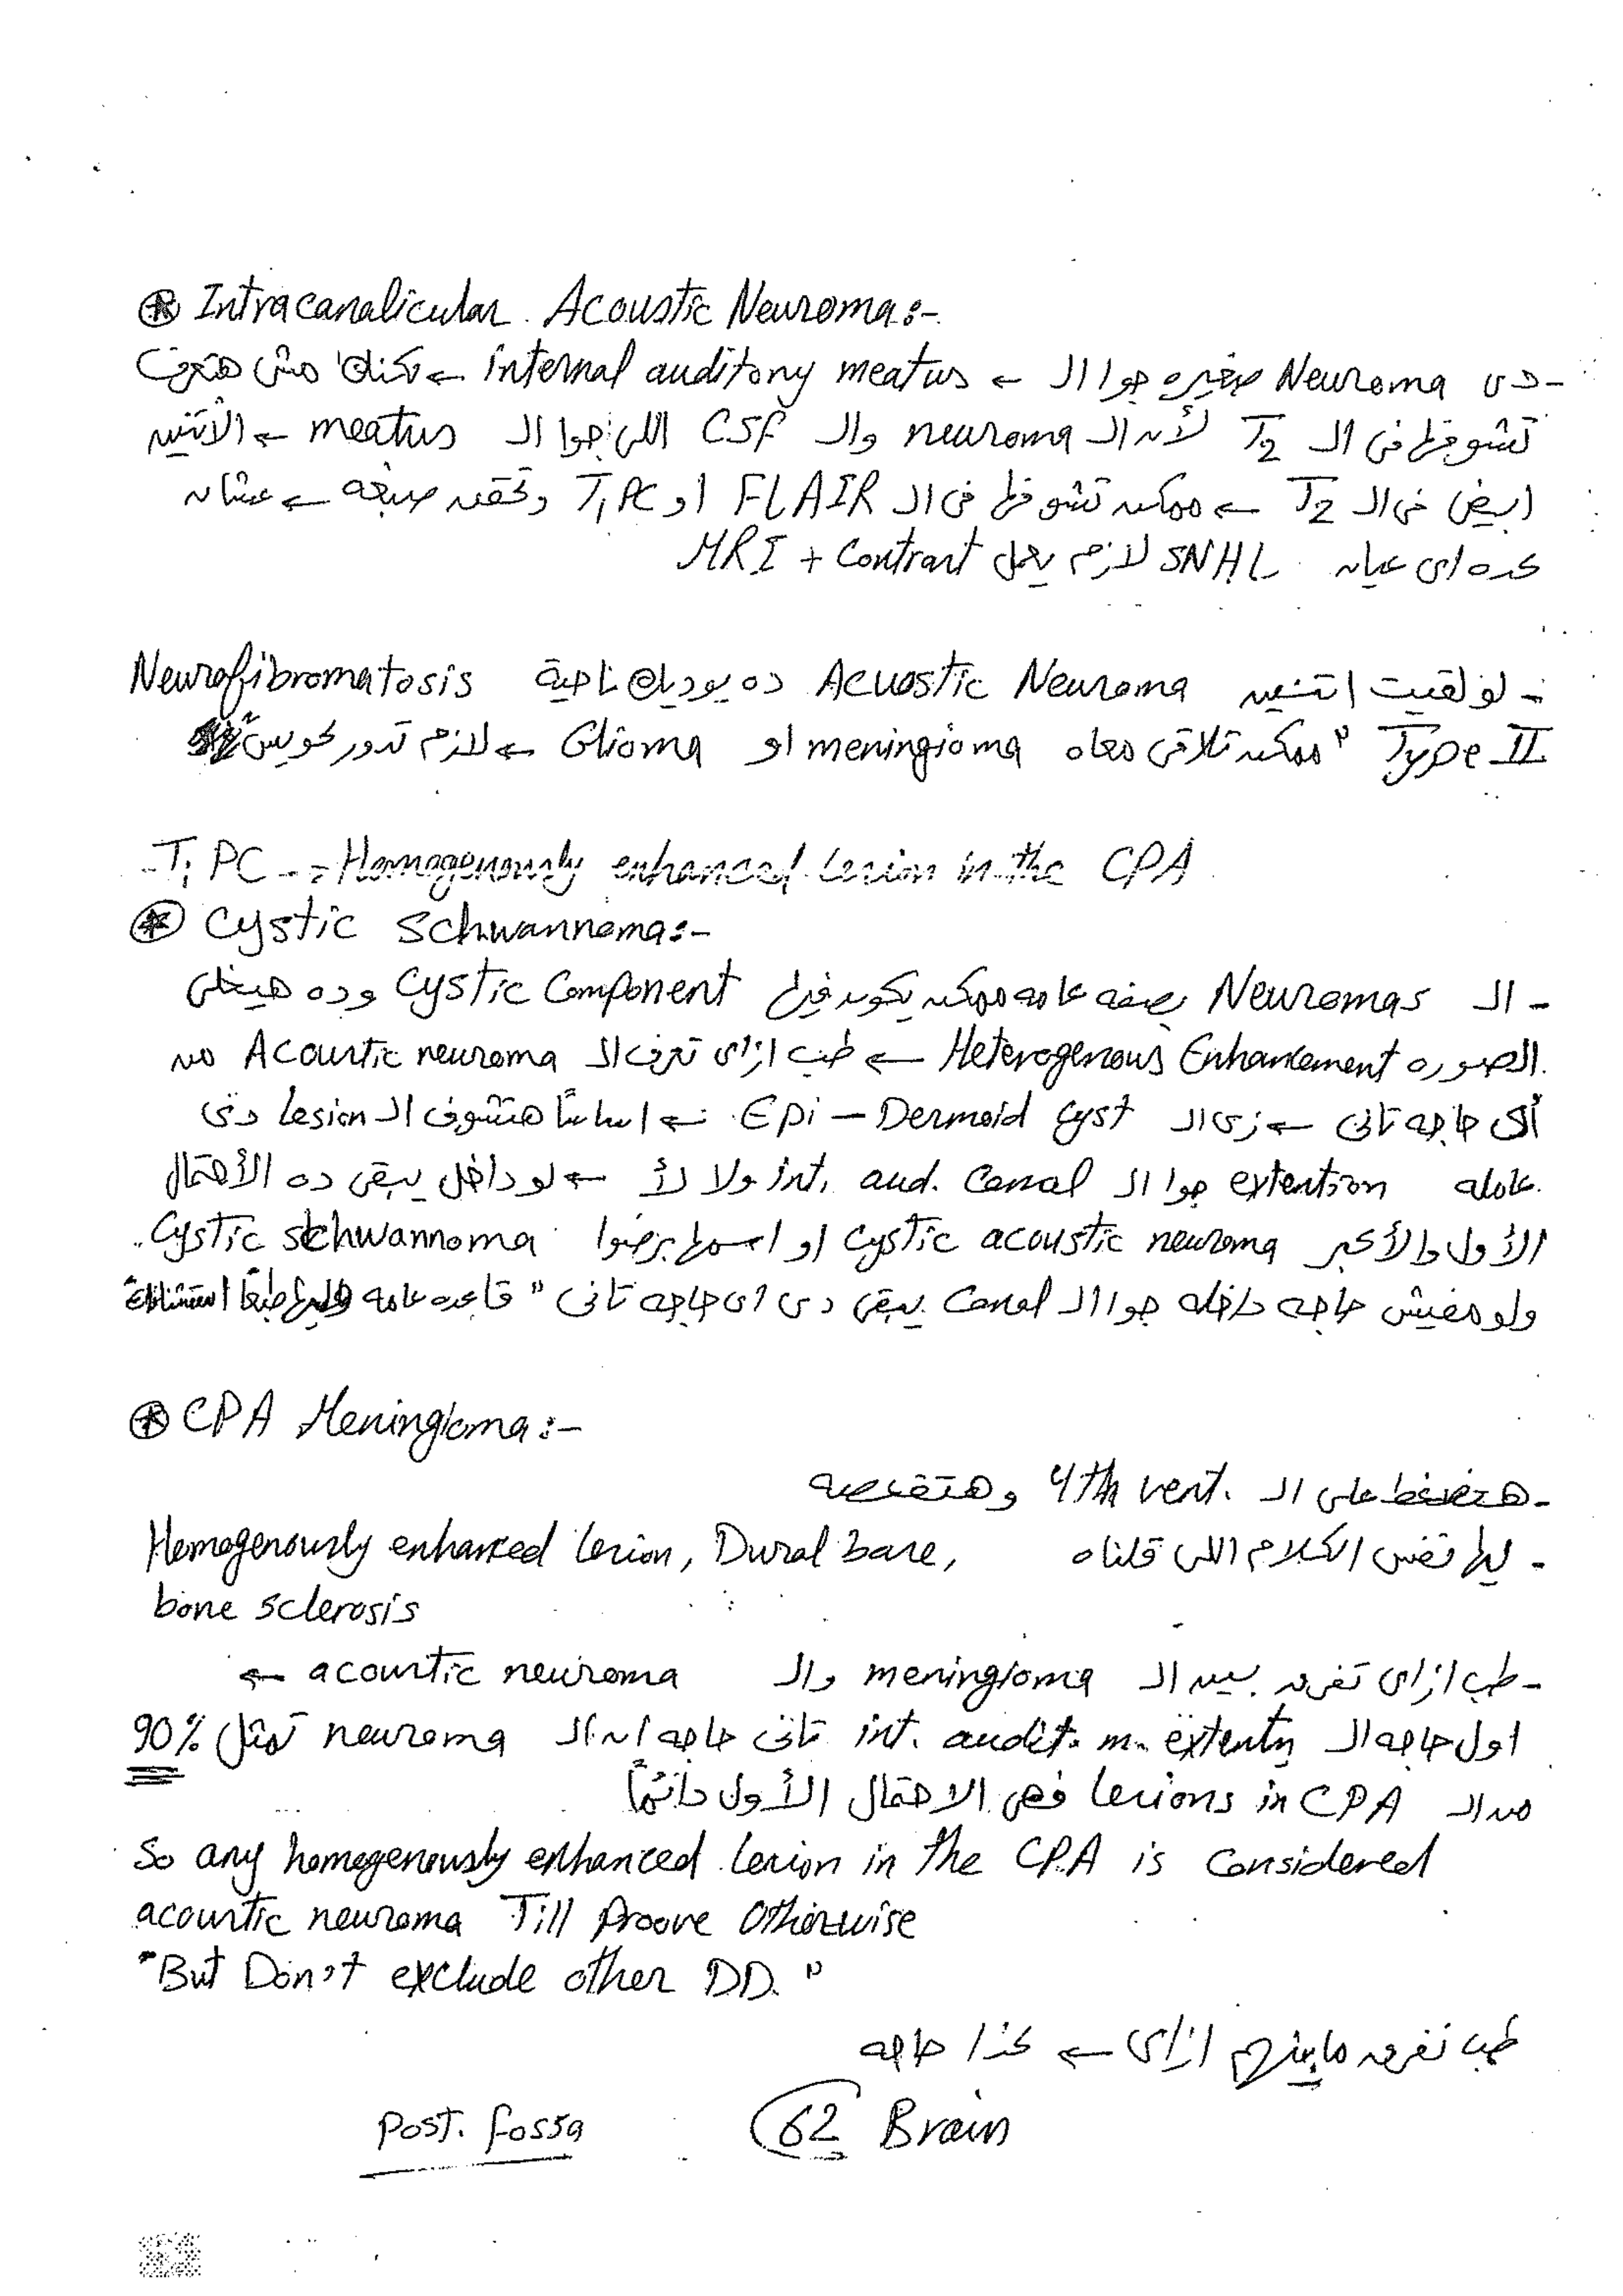 ⊛ Intracanalicular Acoustic Neuroma:-
- دى Neuroma صغيره جوا الـ ← internal auditory meatus ← مش هتعرف
تشوفها فى الـ T2 لأن الـ neuroma والـ CSF اللى جوا الـ meatus ← الأتنين
ابيض فى الـ T2 ← ممكن تشوفها فى الـ FLAIR او T1 PC وتحقن صبغه ← عشان
كده اى عيان SNHL لازم يعمل MRI + Contrart
- لو لقيت اتنين Acuostic Neuroma ده يوديك ناحية Neurofibromatosis
Type II " ممكن تلاقى معاه meningioma او Glioma ← لازم تدور كويس "
- T1 PC -> Homogenously enhanced lesion in the CPA
⊛ Cystic Schwannoma:-
- الـ Neuromas بصفه عامه ممكن يكون فيها Cystic Component وده هيخلى
الصوره Heterogenous Enhancement ← طب ازاى تعرف الـ Acoustic neuroma من
أى حاجه تانى ← زى الـ Epi-Dermoid cyst ← اساساً هتشوف الـ lesion دى
عامله extention جوا الـ int. aud. canal ولا لأ ← لو داخل يبقى ده الأحتمال
الأول والأكبر cystic acoustic neuroma او اسمها برضوا Cystic schwannoma
ولو مفيش حاجه داخله جوا الـ Canal يبقى دى اى حاجه تانى " قاعده عامه وليها طبعاً استثناءات "
⊛ CPA Meningioma:-
- هتضغط على الـ 4th vent. وهتقفصه
- ليها نفس الكلام اللى قلناه Homogenously enhanced lesion, Dural base,
bone sclerosis
- طب ازاى تفرق بين الـ meningioma والـ acoustic neuroma ←
اول حاجه الـ int. audit. m. extentn تانى حاجه ان الـ neuroma تمثل 90%
من الـ lesions in CPA فهى الاحتمال الأول دائماً
So any homogenously enhanced lesion in the CPA is considered
acoustic neuroma Till Proove Otherwise
"But Don't exclude other DD."
طب نفرق مابينهم ازاى ← كذا حاجه
Post. fossa 62 Brain